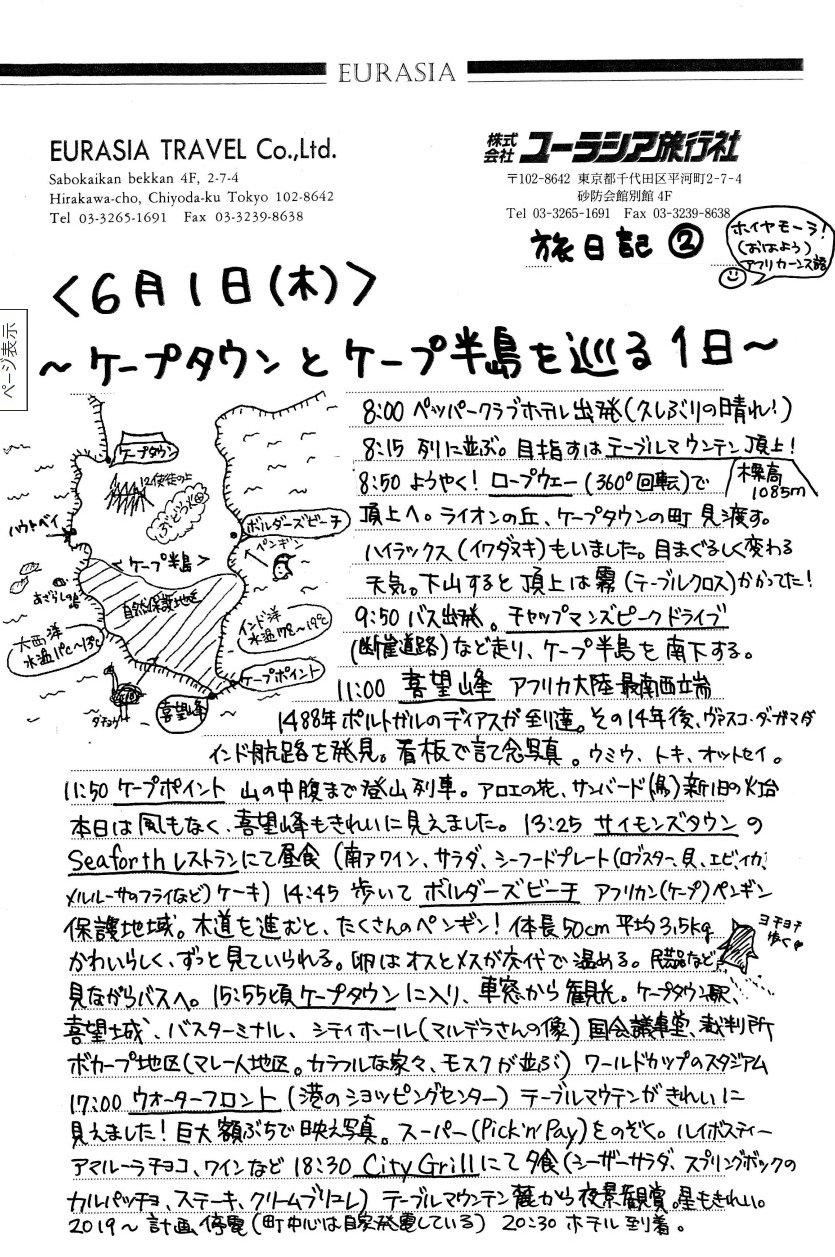 EURASIA
EURASIA TRAVEL Co.,Ltd.
Sabokaikan bekkan 4F, 2-7-4
Hirakawa-cho, Chiyoda-ku Tokyo 102-8642
Tel 03-3265-1691 Fax 03-3239-8638
株式会社 ユーラシア旅行社
〒102-8642 東京都千代田区平河町2-7-4
砂防会館別館 4F
Tel 03-3265-1691 Fax 03-3239-8638
旅日記 ②
ホイヤモーラ!
(おはよう)
アフリカーンス語
<6月1日(木)>
ページ表示
~ケープタウンとケープ半島を巡る1日~
ケープタウン
12使徒の山
ぶどう畑
ハウトベイ
ボルダーズビーチ
ペンギン
<ケープ半島>
あざらしの島
自然保護地区
大西洋
水温11℃~13℃
インド洋
水温17℃~19℃
ケープポイント
喜望峰
ダチョウ
8:00 ペッパークラブホテル出発(久しぶりの晴れ!)
8:15 列に並ぶ。目指すはテーブルマウンテン頂上!
8:50 ようやく! ロープウェー(360°回転)で
標高
1085m
頂上へ。ライオンの丘、ケープタウンの町見渡す。
ハイラックス(イワダヌキ)もいました。目まぐるしく変わる
天気。下山すると頂上は霧(テーブルクロス)かかってた!
9:50 バス出発。チャップマンズピークドライブ
(断崖道路)など走り、ケープ半島を南下する。
11:00 喜望峰 アフリカ大陸最南西端
1488年ポルトガルのディアスが到達。その14年後、ヴァスコ・ダ・ガマが
インド航路を発見。看板で記念写真。ウミウ、トキ、オットセイ。
11:50 ケープポイント 山の中腹まで登山列車。アロエの花、サンバード(鳥)新旧の灯台
本日は風もなく、喜望峰もきれいに見えました。13:25 サイモンズタウンの
Seaforthレストランにて昼食(南アワイン、サラダ、シーフードプレート(ロブスター、貝、エビ、イカ、
メルルーサのフライなど)ケーキ) 14:45 歩いてボルダーズビーチ アフリカン(ケープ)ペンギン
保護地域。木道を進むと、たくさんのペンギン! 体長50cm 平均3,5kg
ヨチヨチ
歩く
かわいらしく、ずっと見ていられる。卵はオスとメスが交代で温める。民芸品など
見ながらバスへ。15:55頃ケープタウンに入り、車窓から観光。ケープタウン駅、
喜望城、バスターミナル、シティホール(マルデラさんの像)国会議事堂、裁判所
ボカープ地区(マレー人地区。カラフルな家々、モスクが並ぶ) ワールドカップのスタジアム
17:00 ウォーターフロント(港のショッピングセンター) テーブルマウテンがきれいに
見えました! 巨大額ぶちで映え写真。スーパー(Pick'n'Pay)をのぞく。ルイボスティー
アマルーラチョコ、ワインなど 18:30 City Grillにて夕食(シーザーサラダ、スプリングボックの
カルパッチョ、ステーキ、クリームブリュレ) テーブルマウンテン麓から夜景観賞。星もきれい。
2019~計画停電(町中心は自家発電している) 20:30 ホテル到着。